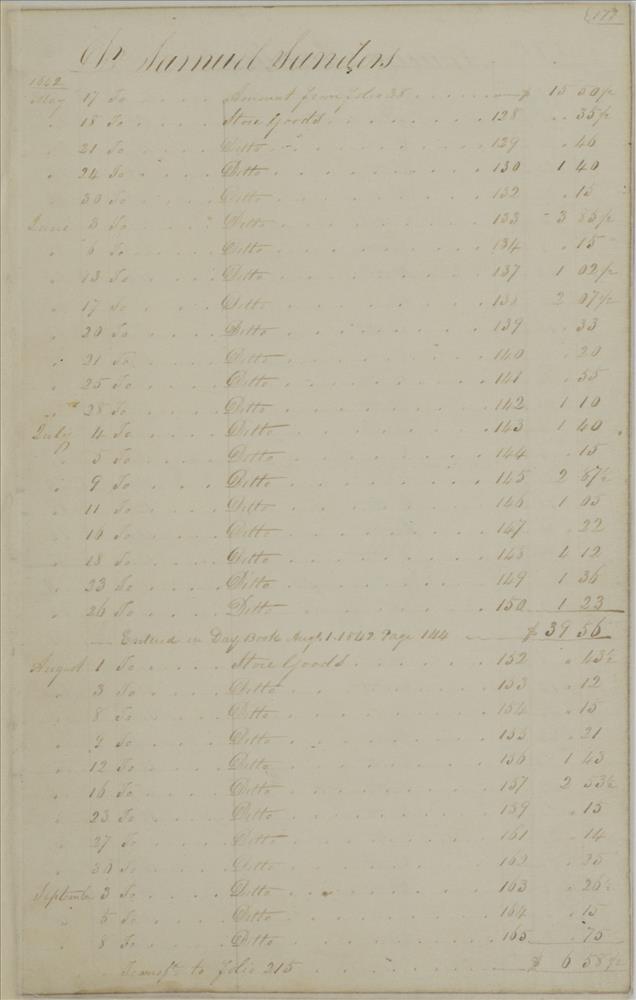 177
Dr Samuel Sanders
1842
May 17 To Amount from folio 38 $ 15 50/2
" 18 To Store Goods 128 " 35/2
" 21 To Ditto 129 " 46
" 24 To Ditto 130 1 40
" 30 To Ditto 132 " 15
June 3 To Ditto 133 3 83/2
" 6 To Ditto 134 " 15
" 13 To Ditto 137 1 02/2
" 17 To Ditto 138 2 07 1/2
" 20 To Ditto 139 " 33
" 21 To Ditto 140 " 20
" 25 To Ditto 141 " 55
" 28 To Ditto 142 1 10
July 4 To Ditto 143 1 40
" 5 To Ditto 144 " 15
" 9 To Ditto 145 2 87 1/2
" 11 To Ditto 146 1 05
" 16 To Ditto 147 " 22
" 18 To Ditto 148 1 12
" 23 To Ditto 149 1 36
" 26 To Ditto 150 1 23
Entered in Day Book Augt 1. 1842 Page 144 $ 39 56
August 1 To Store Goods 152 " 43 1/2
" 3 To Ditto 153 " 12
" 8 To Ditto 154 " 15
" 9 To Ditto 155 " 21
" 12 To Ditto 156 1 43
" 16 To Ditto 157 2 53 1/2
" 23 To Ditto 159 " 15
" 27 To Ditto 161 " 14
" 30 To Ditto 162 " 25
September 3 To Ditto 163 " 26 1/2
" 5 To Ditto 164 " 15
" 8 To Ditto 165 " 75
to folio 215 $ 6 58 1/2